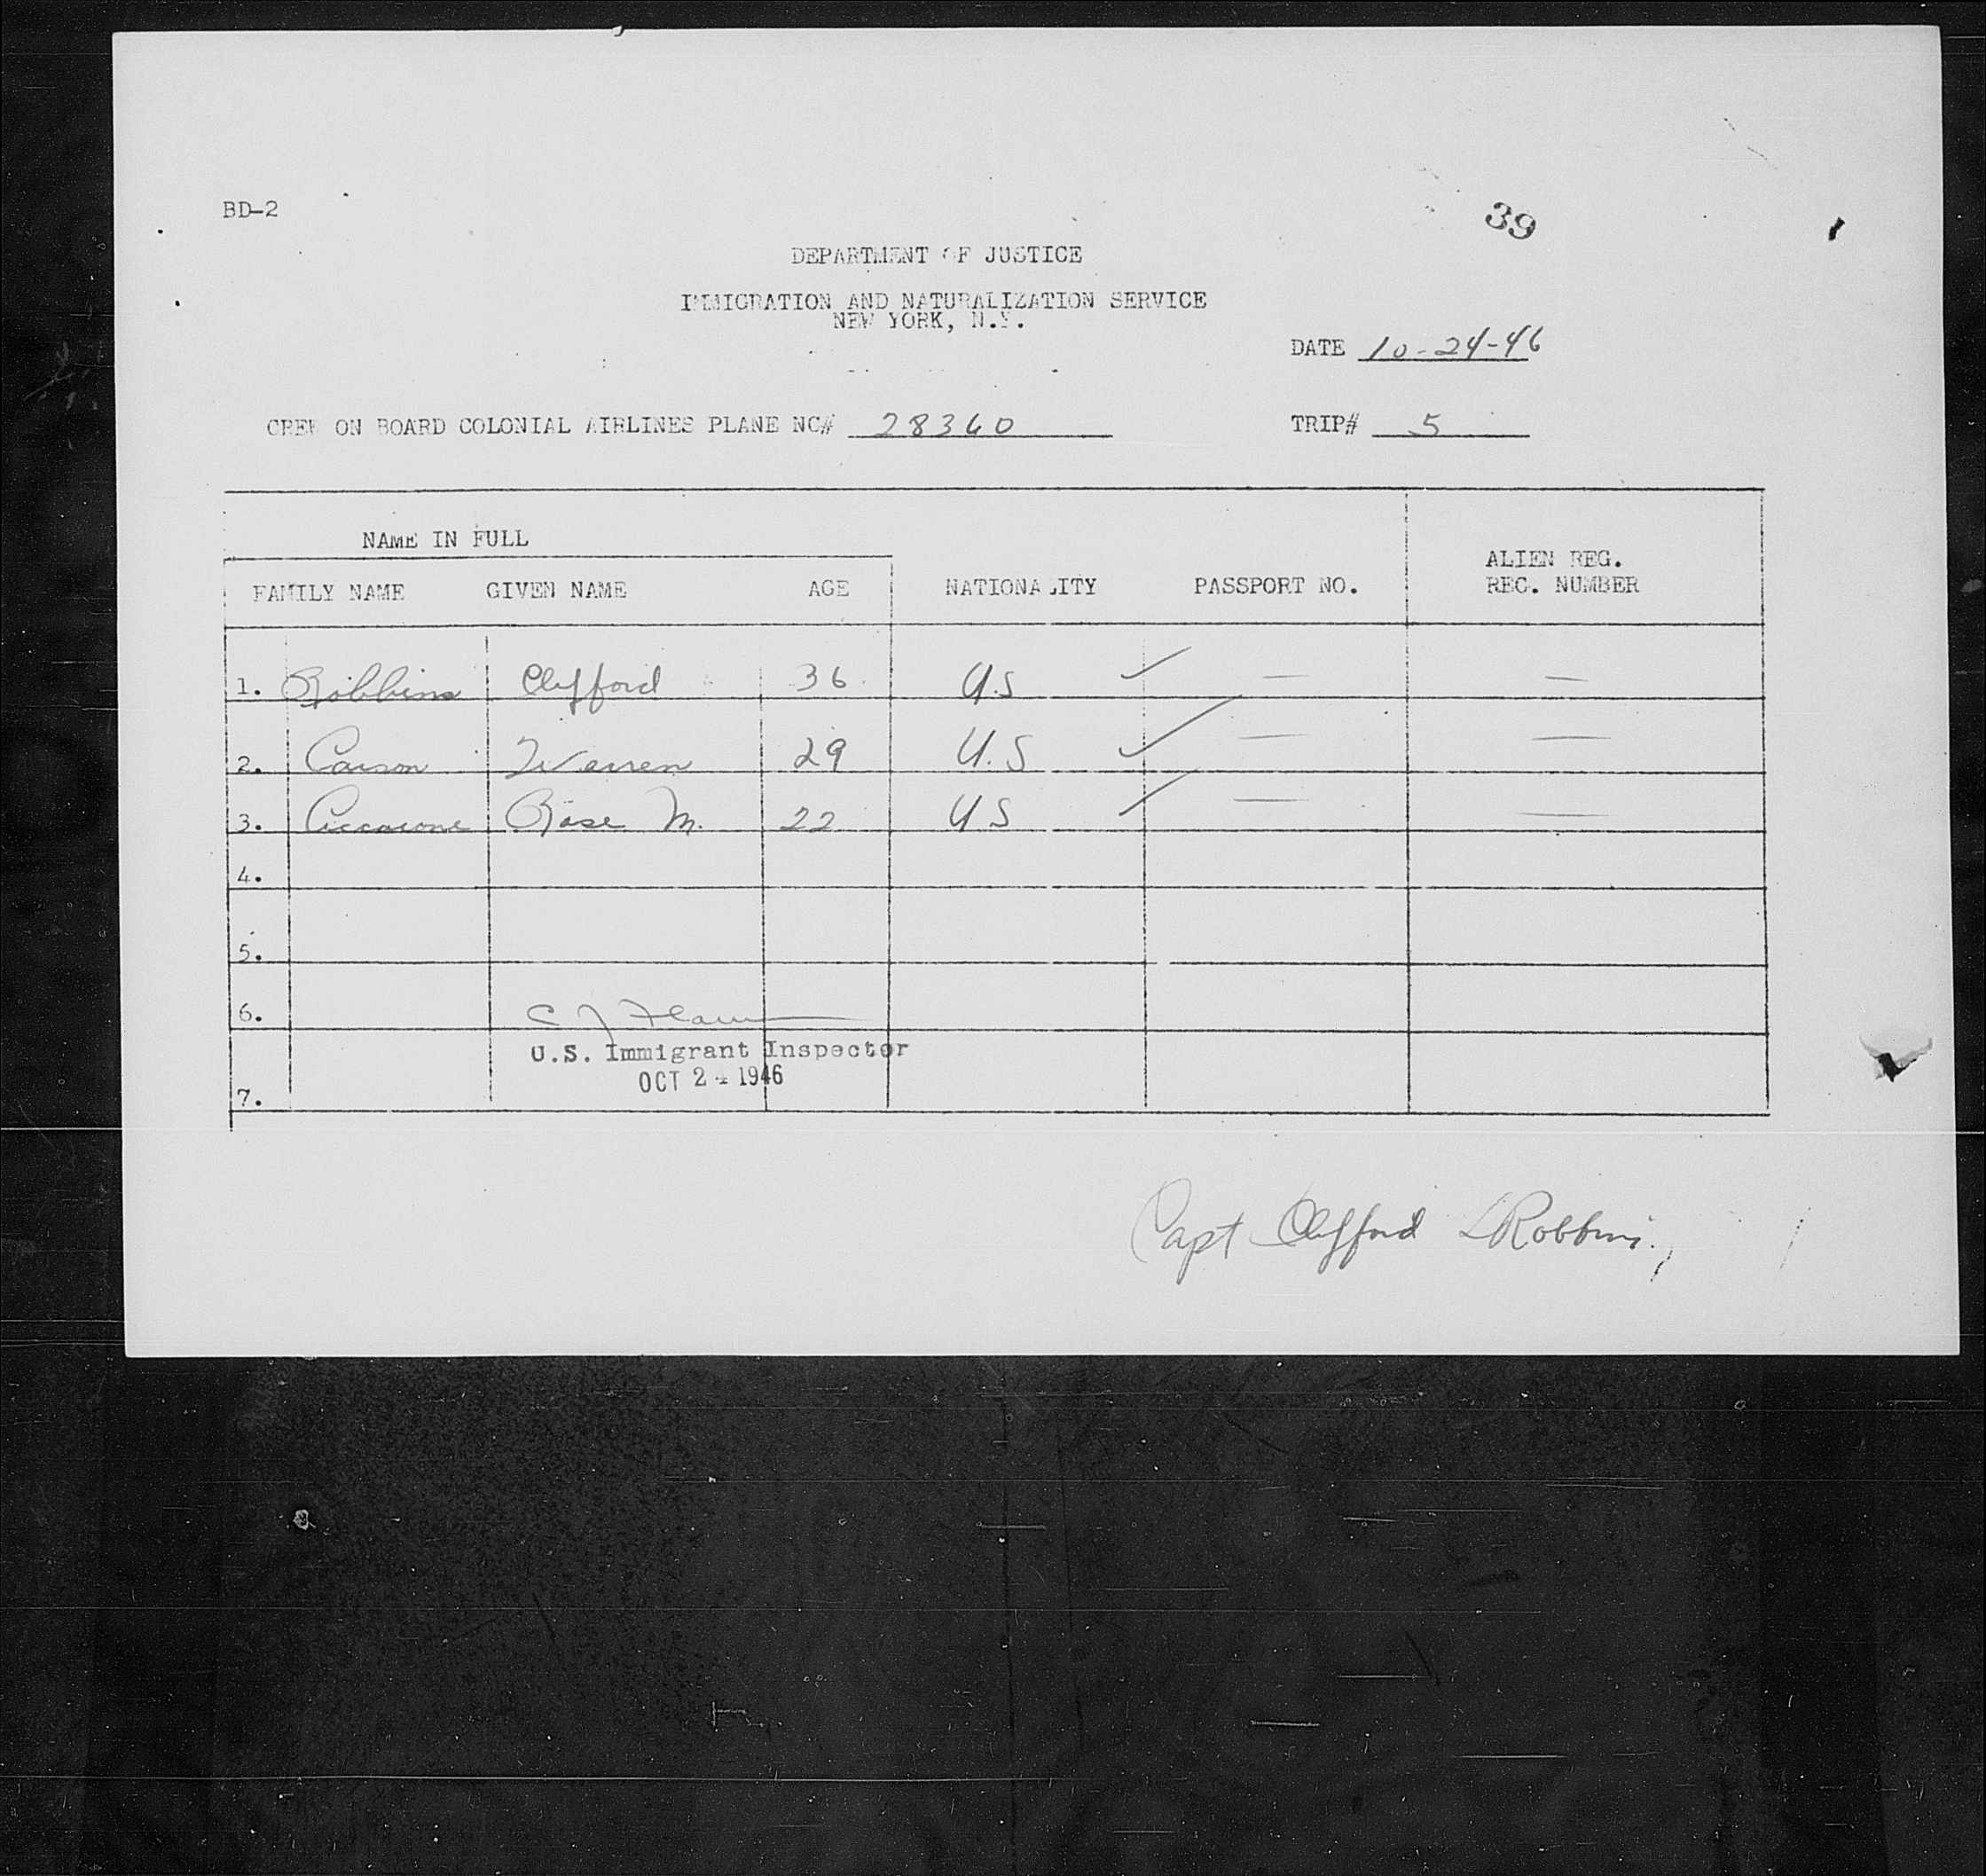 BD-2
39
DEPARTMENT OF JUSTICE
IMMIGRATION AND NATURALIZATION SERVICE
NEW YORK, N.Y.
DATE 10-24-46
CREW ON BOARD COLONIAL AIRLINES PLANE NC# 28360 TRIP# 5
NAME IN FULL
ALIEN REG.
FAMILY NAME GIVEN NAME AGE NATIONALITY PASSPORT NO. REG. NUMBER
1. Robbins Clifford 36 U.S ✓ — —
2. Carson Warren 29 U.S ✓ — —
3. Rose M. 22 U S ✓ — —
4.
5.
6. C J
U.S. Immigrant Inspector
OCT 24 1946
7.
Capt Clifford L Robbins